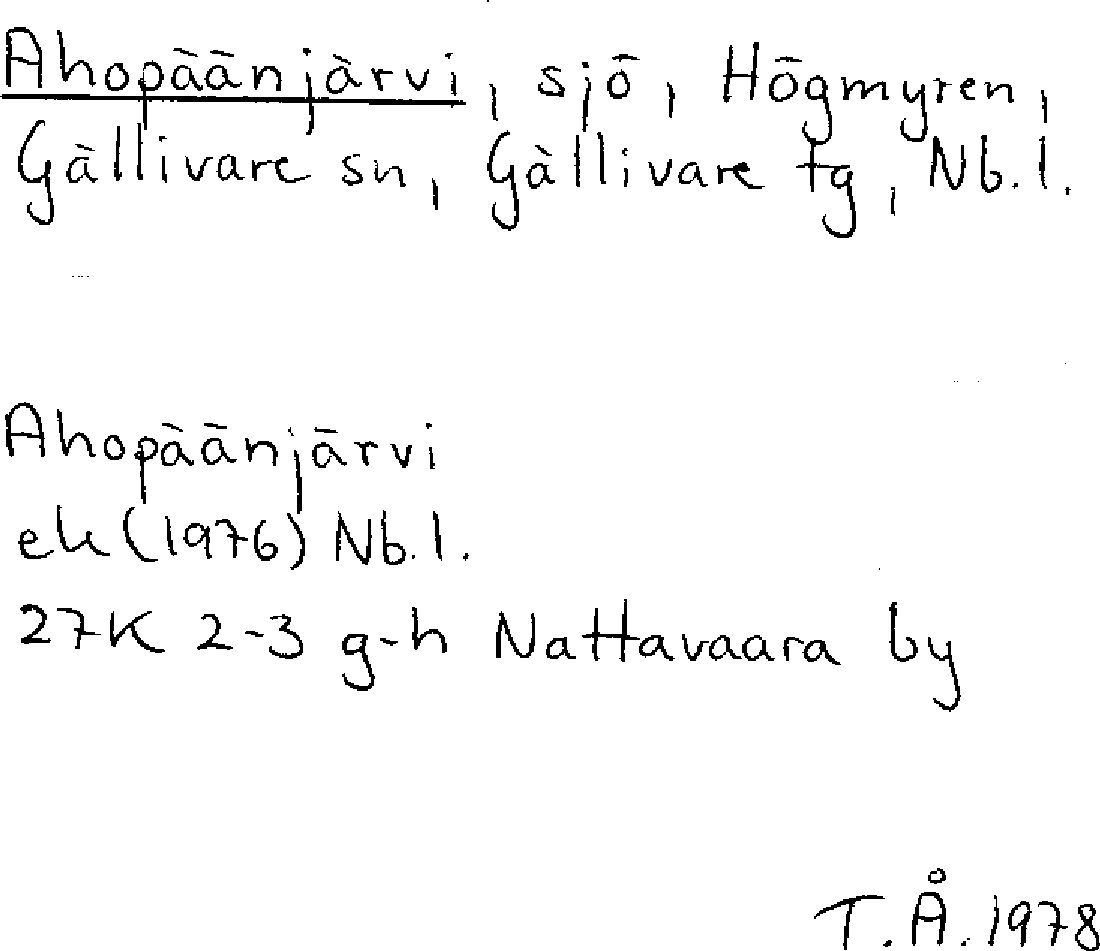 Ahopäänjärvi, sjö, Högmyren,
Gällivare sn, Gällivare tg, Nb.l.
Ahopäänjärvi
ek (1976) Nb.l.
27K 2-3 g-h Nattavaara by
T.Å. 1978